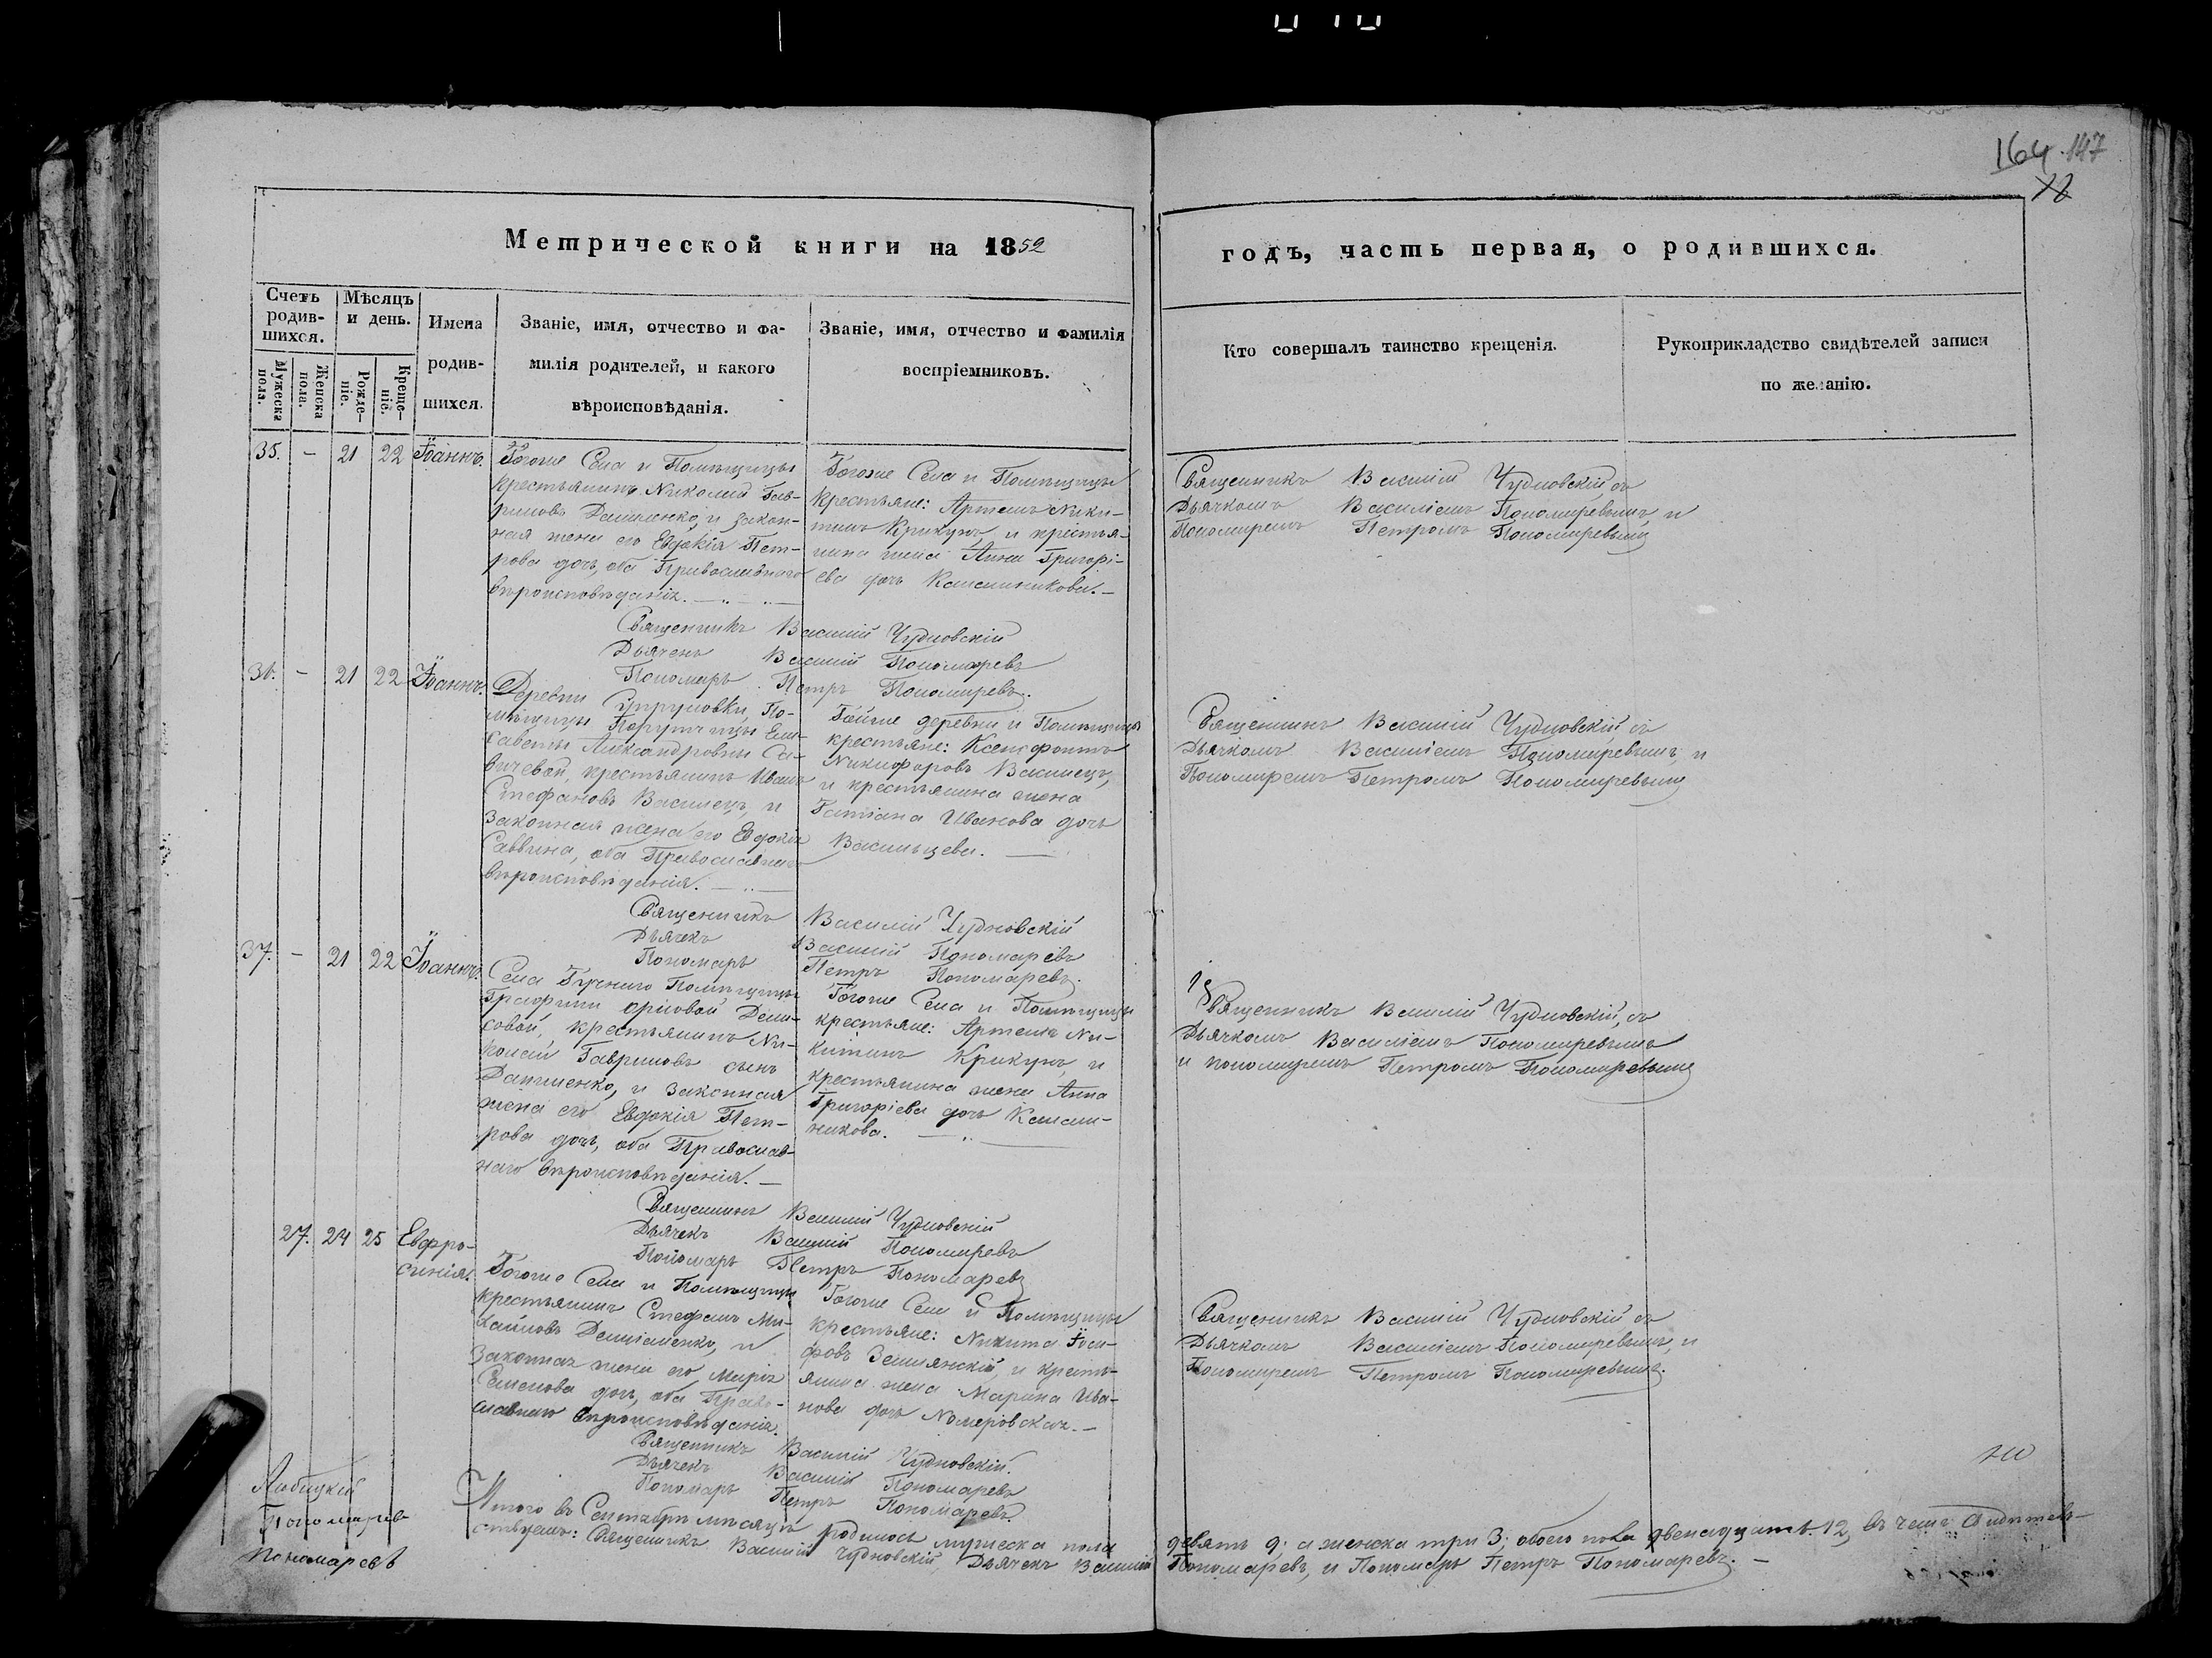 164 147
Метрической книги на 1852
годъ, часть первая, о родившихся.
Счетъ родив-
шихся.
Мѣсяцъ
и день.
Мужеска
пола.
Женска
пола.
Рожде-
ніе.
Креще-
ніе.
Имена
родив-
шихся.
Званіе, имя, отчество и фа-
милія родителей, и какого
вѣроисповѣданія.
Званіе, имя, отчество и фамилія
воспріемниковъ.
Кто совершалъ таинство крещенія.
Рукоприкладство свидѣтелей записи
по желанію.
35. – 21 22 Іоаннъ.
Тогоже Села и Помѣщицы
крестьянинъ Николай Гав-
риловъ и закон-
ная жена его Евдокія Пет-
рова дочь, оба Православнаго
вѣроисповѣданія.
Тогоже Села и Помѣщицы
крестьяне: Артемъ Ники-
тинъ Крикунъ, и крестья-
нина жена Анна Григорі-
ева дочь
Священникъ Василій Чудновскій съ
Дьячкомъ Василіемъ Пономаревымъ и
Пономаремъ Петромъ Пономаревымъ
Священникъ Василій Чудновскій
Дьячекъ Василій Пономаревъ
Пономарь Петръ Пономаревъ.
36. – 21 22 Іоаннъ.
Деревни По-
мѣщицы Порутчицы Ели-
саветы Александровны Са-
вичевой, крестьянинъ Иванъ
Стефановъ Василецъ, и
законная жена его Евдокія
Саввина, оба Православнаго
вѣроисповѣданія.
Тойже деревни и Помѣщицы
крестьяне: Ксенофонтъ
Никифоровъ Василецъ,
и крестьянина жена
Татіана Иванова дочь
Васильцева.
Священникъ Василій Чудновскій съ
Дьячкомъ Василіемъ Пономаревымъ, и
Пономаремъ Петромъ Пономаревымъ
Священникъ Василій Чудновскій
Дьячекъ Василій Пономаревъ
Пономарь Петръ Пономаревъ.
37. – 21 22 Іоаннъ.
Села Помѣщицы
Графини Орловой Дени-
совой, крестьянинъ Ни-
колай Гавриловъ сынъ
и законная
жена его Евдокія Пет-
рова дочь, оба Православ-
наго вѣроисповѣданія.
Тогоже Села и Помѣщицы
крестьяне: Артемъ Ни-
китинъ Крикунъ, и
крестьянина жена Анна
Григоріева дочь
никова.
Священникъ Василій Чудновскій, съ
Дьячкомъ Василіемъ Пономаревымъ
и пономаремъ Петромъ Пономаревымъ
Священникъ Василій Чудновскій
Дьячекъ Василій Пономаревъ
Пономарь Петръ Пономаревъ
27. 24 25 Евфро-
синія.
Тогоже Села и Помѣщицы
крестьянинъ Стефанъ Ми-
хайловъ и
законная жена его Марія
Семенова дочь, оба Право-
славнаго вѣроисповѣданія.
Тогоже Села и Помѣщицы
крестьяне: Никита Іоси-
фовъ Землянскій, и кресть-
янина жена Марина Ива-
нова дочь
Священникъ Василій Чудновскій съ
Дьячкомъ Василіемъ Пономаревымъ, и
Пономаремъ Петромъ Пономаревымъ.
Священникъ Василій Чудновскій.
Дьячекъ Василій Пономаревъ
Пономарь Петръ Пономаревъ.
Пономаревъ
Пономаревъ
Итого въ Сентябрѣ мѣсяцѣ родилось мужеска пола девять 9; а женска три 3; обоего пола двенадцать 12, въ чемъ свидѣтель-
ствуемъ: Священникъ Василій Чудновскій, Дьячекъ Василій Пономаревъ, и Пономарь Петръ Пономаревъ.